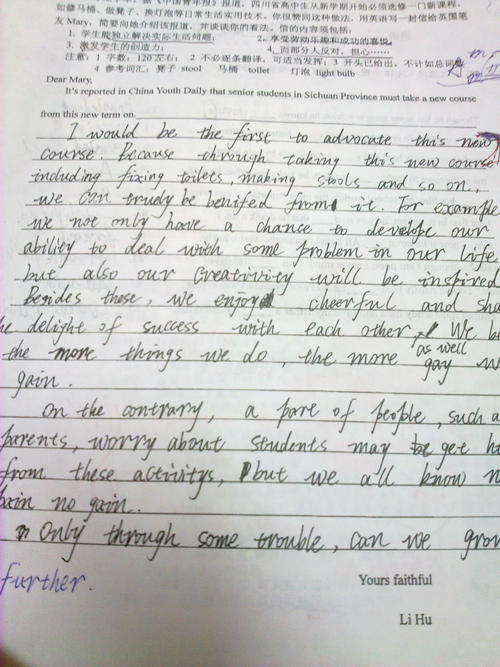 据《中国青年报》报道，四川省高中生从新学期开始必须选修一门新课程，
如修马桶，做凳子、换灯泡等日常生活实用技术。你很赞同这种做法，用英语写一封信给英国笔
友 Mary，简要向她介绍该报道，并谈谈你的看法。信的内容须包括：
1. 学生能独立解决实际生活问题； 2. 享受劳动乐趣和成功的喜悦。
3. 激发学生的创造力； 4. 而部分人反对，担心……
注意：1 字数：120 左右； 2 不必逐条翻译，可适当发挥；3 开头已给出，不计如总词数
4 参考词汇：凳子 stool 马桶 toilet 灯泡 light bulb
Dear Mary,
It's reported in China Youth Daily that senior students in Sichuan Province must take a new course
from this new term on.
I would be the first to advocate this new
course. Because through taking this new course
including fixing toilets, making stools and so on,
we can trudy be benifed from it. For example
we not only have a chance to develope our
ability to deal with some problem in our life
but also our creativity will be inspired
Besides these, we enjoy cheerful and sha
he delight of success with each other as well. We be
the more things we do, the more gay w
gain.
On the contrary, a part of people, such a
parents, worry about students may get h
from these activitys, but we all know n
pain no gain.
Only through some trouble, can we grow
further.
Yours faithful
Li Hu